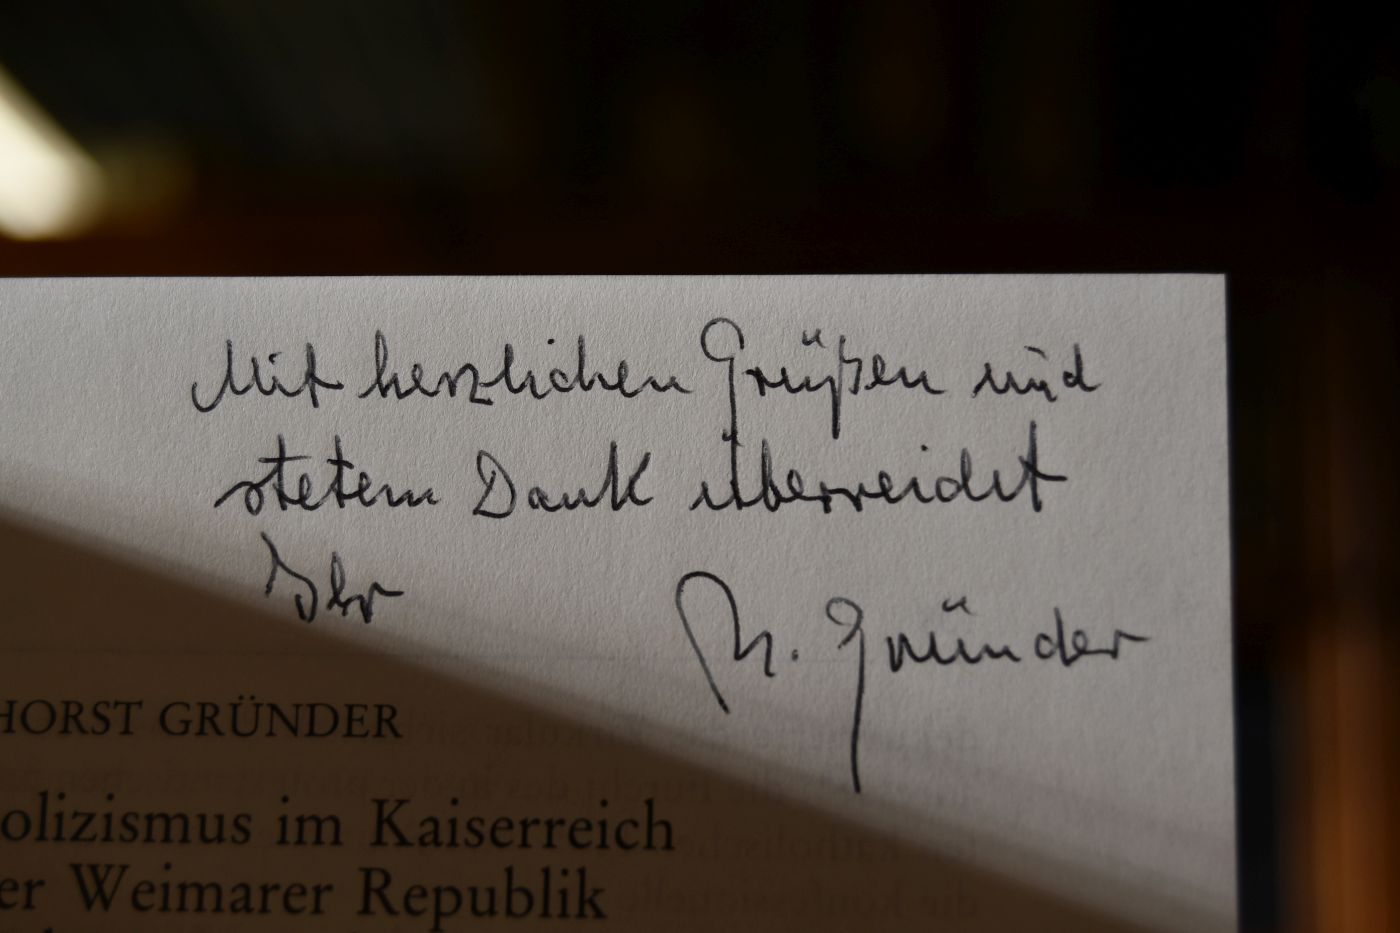 Mit herzlichen Grüßen und
stetem Dank überreicht
Ihr
H. Gründer
HORST GRÜNDER
olizismus im Kaiserreich
er Weimarer Republik